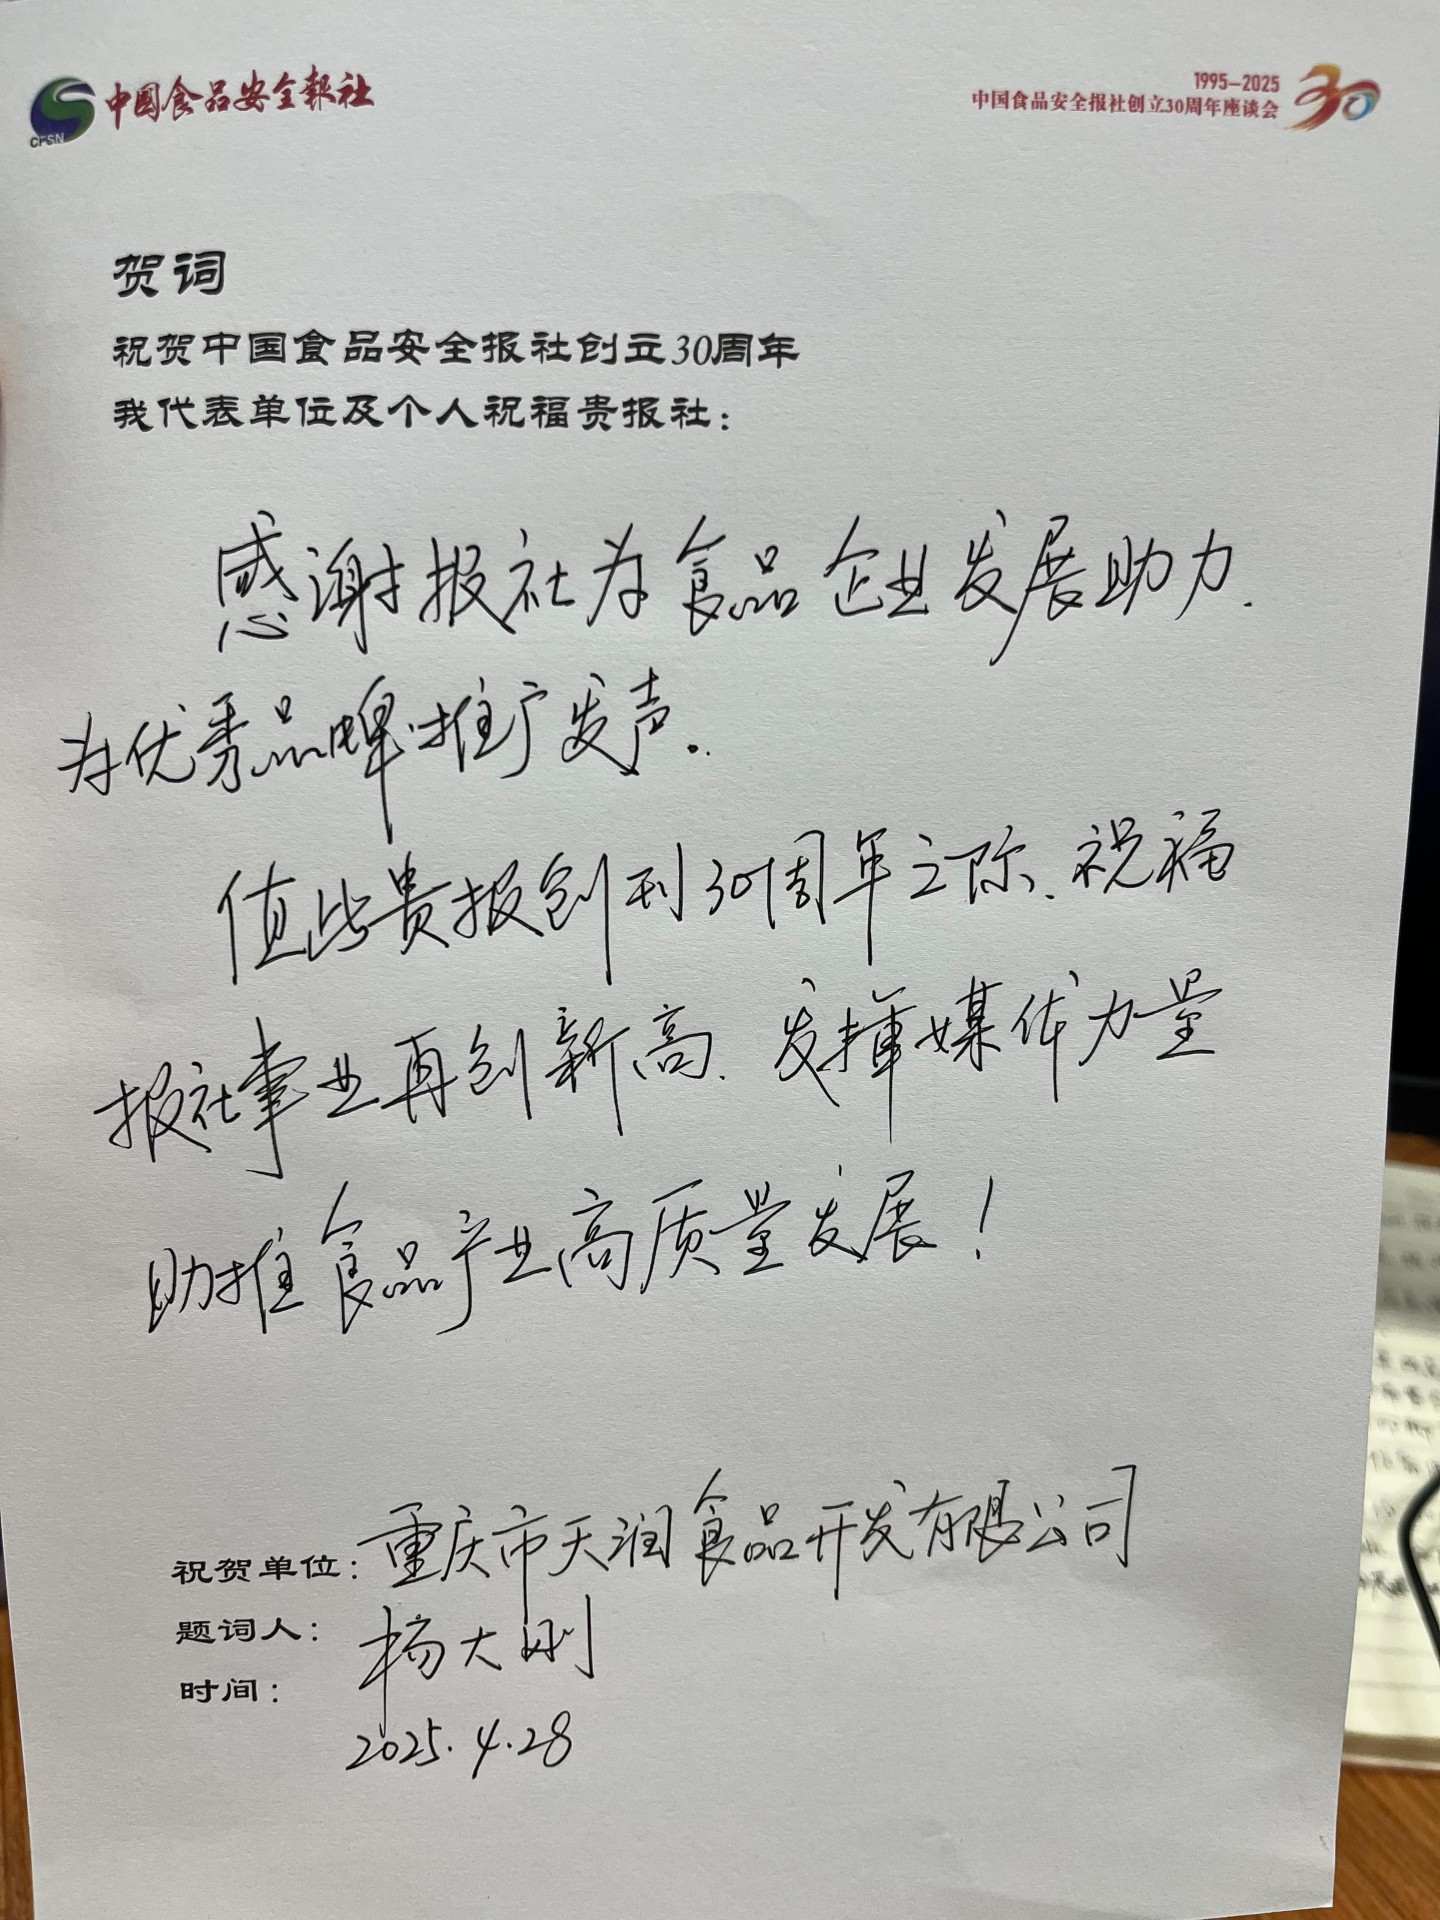 CFSN
中国食品安全報社
1995—2025
中国食品安全报社创立30周年座谈会
30
贺词
祝贺中国食品安全报社创立30周年
我代表单位及个人祝福贵报社：
感谢报社为食品企业发展助力.
为优秀品牌推广发声.
值此贵报创刊30周年之际、祝福
报社事业再创新高、发挥媒体力量
助推食品产业高质量发展！
祝贺单位：重庆市天润食品开发有限公司
题词人：杨大刚
时间：
2025.4.28